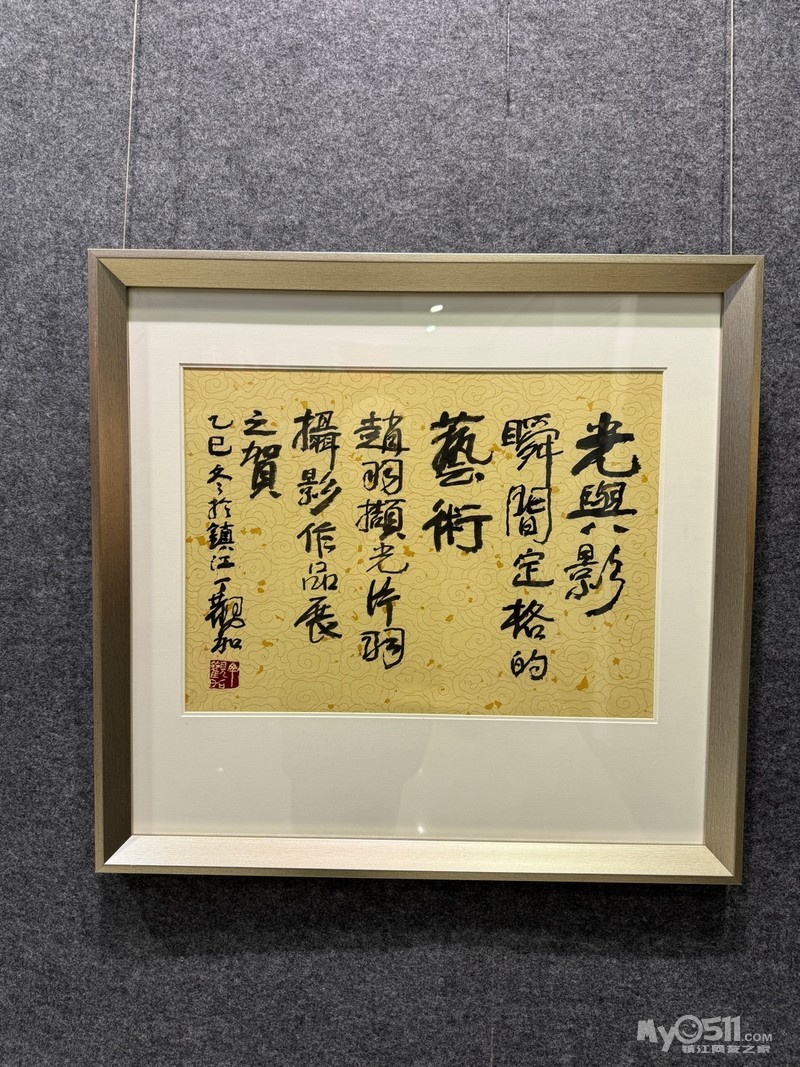 光與影
瞬間定格的
藝術
趙羽擷光片羽
攝影作品展
之賀
乙巳冬於鎮江丁觀加
My0511.COM
镇江网友之家